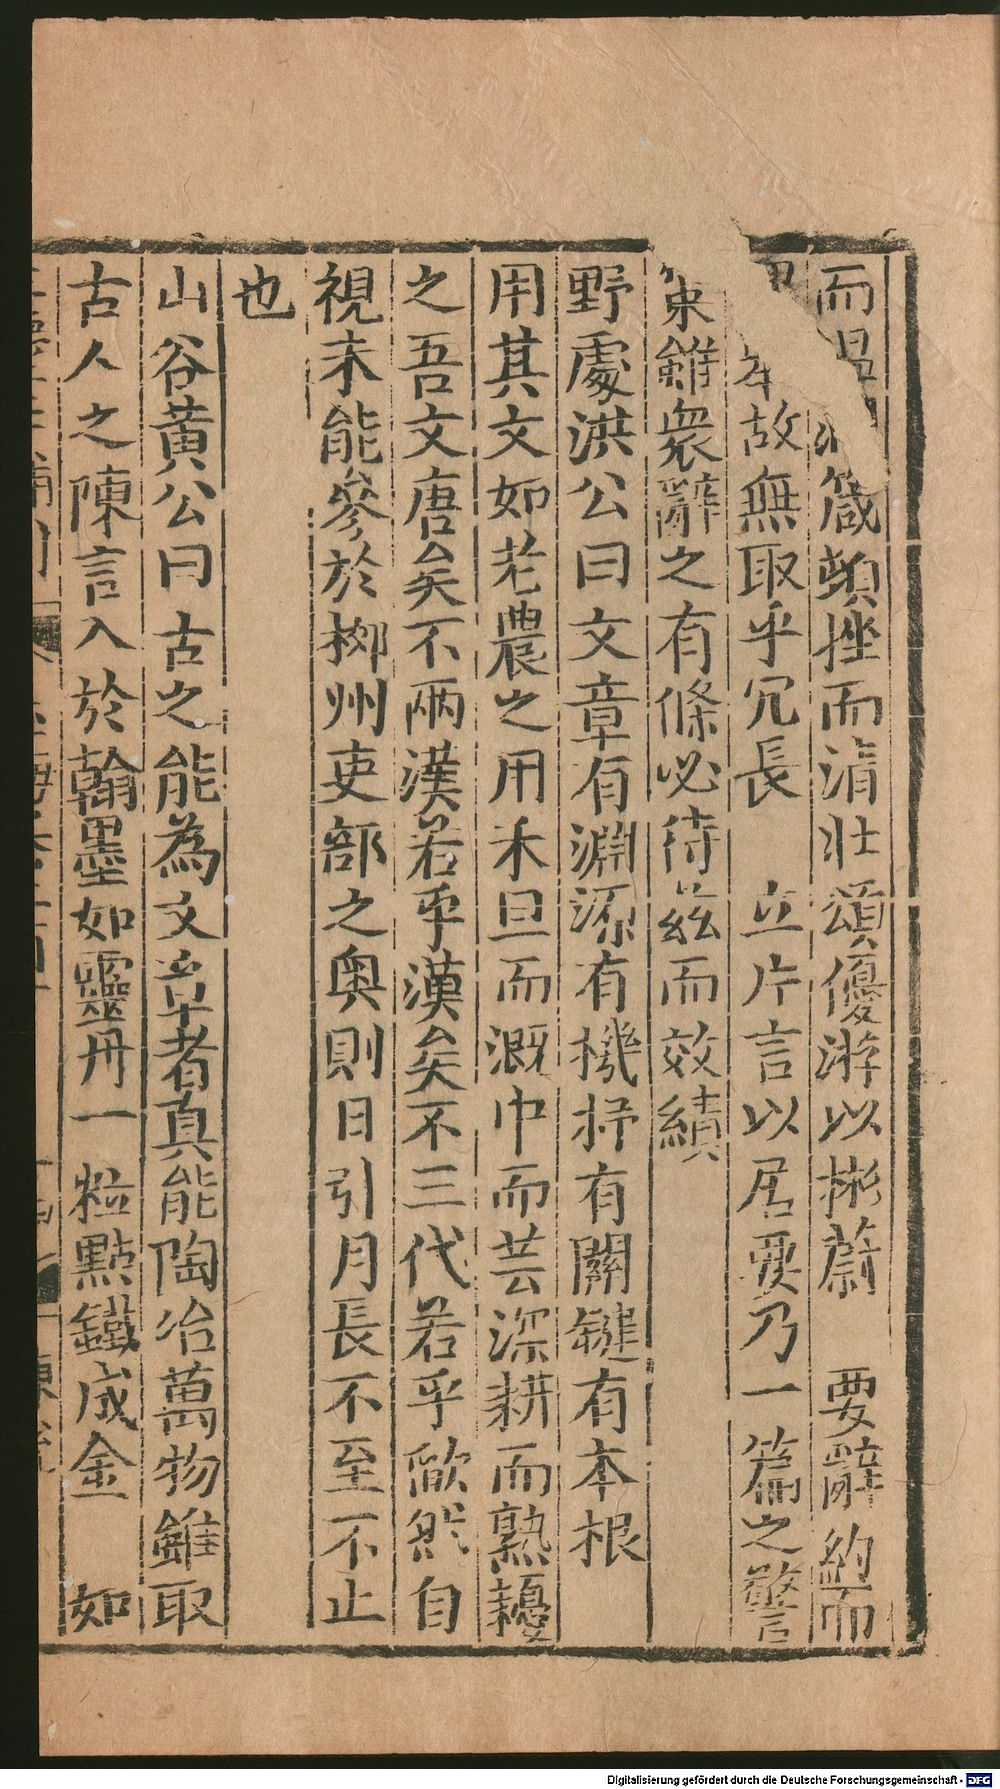 而温 箴頓挫而清壯頌優游以彬蔚 要辭約而
故無取乎冗長 立片言以居要乃一篇之警
策雖衆辭之有條必待兹而效績
野處洪公曰文章有淵源有機抒有關鍵有本根
用其文如老農之用禾旦而溉中而芸深耕而熟耰
之吾文唐矣不兩漢若乎漢矣不三代若乎歉然自
視未能參於栁州吏部之奥則日引月長不至不止
也
山谷黄公曰 古之能為文章者真能陶冶萬物雖取
古人之陳言入於翰墨如靈丹一粒點鐵成金 如
Digitalisierung gefördert durch die Deutsche Forschungsgemeinschaft - DFG